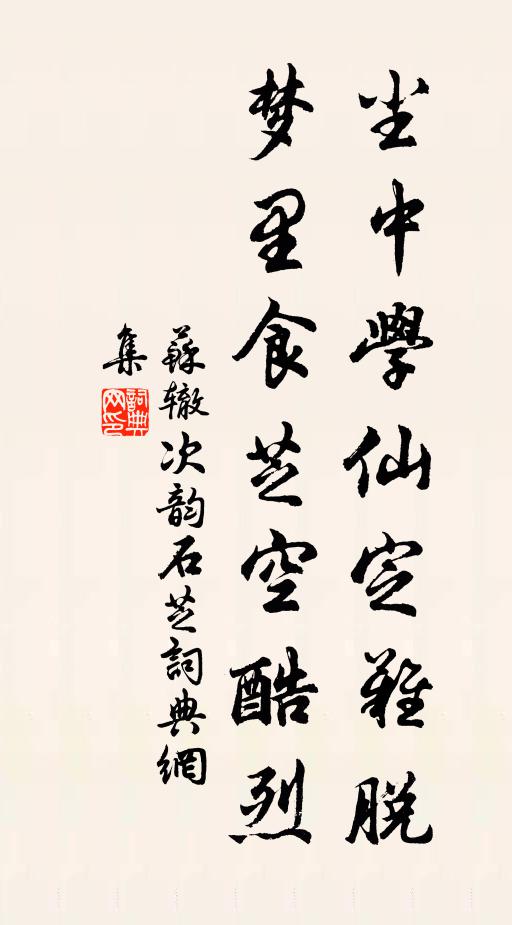 尘中學仙定難脱
梦里食芝空酷烈
蘇辙次韵石芝詞典網
集
詞典
网印